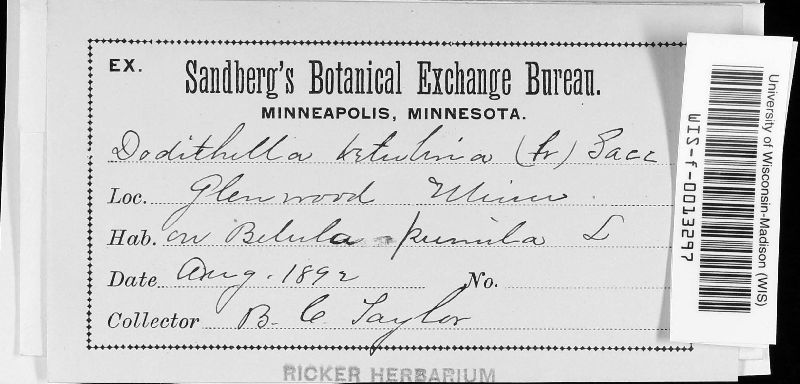 EX. Sandberg's Botanical Exchange Bureau.
MINNEAPOLIS, MINNESOTA.
Dodithella betulina (fr) Sacc
Loc. Glenwood Minn
Hab. on Betula pumila L
Date Aug. 1892 No.
Collector B. C. Taylor
RICKER HERBARIUM
University of Wisconsin-Madison (WIS)
WIS-f-0013297